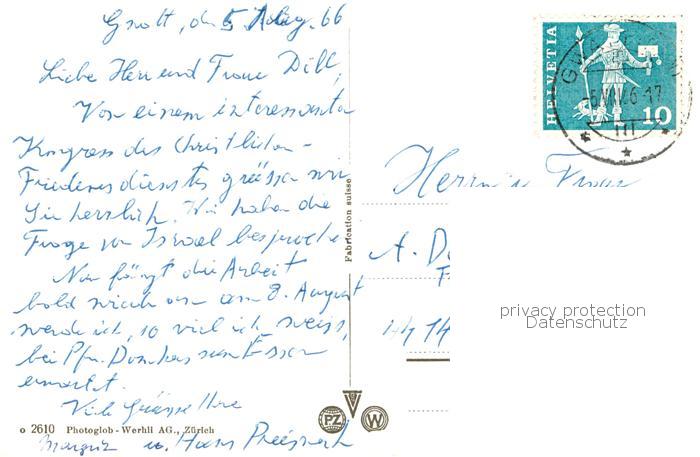 Gwatt, den 5. Aug. 66
Liebe Herr und Frau Döbb,
Von einem interessanten
Kongress des Christlichen
Friedensdienstes grüssen wir
Sie herzlich. Wir haben die
Frage von Israel besprochen
Nun fängt die Arbeit
bald wieder an am 8. August
werde ich, so viel ich weiss,
bei Pfr. zum Essen
erwartet.
Viele Grüsse Ihre
Margrit u. Hans
o 2610 Photoglob-Wehrli AG., Zürich
Fabrication suisse
PZ
W
HELVETIA
10
Herrn u. Frau
A.
privacy protection
Datenschutz